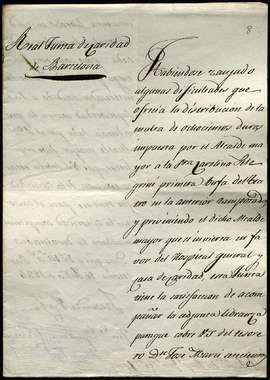 8
Real Junta de Caridad
de Barcelona
Habiendose zanjado
algunas dificultades que
ofrecia la distribucion de la
multa de ochocientos duros
impuesta por el Alcalde ma
yor a la Sra. Carolina Ale
grini primera bufa del tea
tro en la anterior temporada
y previniendo el dicho Alcalde
mayor que se invierta en fa
vor del Hospital general y
casa de caridad, esta Junta
tiene la satisfaccion de acom
pañar la adjunta libranza
para que cobre V.S. del tesore
ro Dn. José María